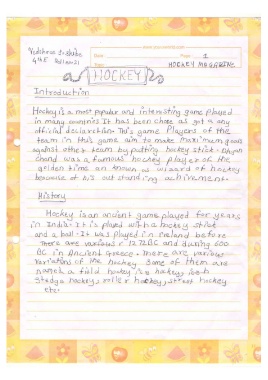 4th E
Date
Page 1
HOCKEY MEGAZINE
HOCKEY
Introduction
Hockey is a most popular and interesting game played
in many countries It has been chose as got a any
official declaraction. This game Players of the
team in this game aim to make maximum goals
against other team by putting hockey stick. Dhyan
chand was a famous hockey player of the
golden time an known as wizard of hockey
because of his out standing achivement.
History
Hockey is an ancient game played for years
in India. It is played with a hockey stick
and a ball. It was played in Ireland before
There are various 1272BC and during 600
BC in Ancient Greece. There are various
variations of the hockey Some of them are
field hockey hockey
Sledge hockey, roller hockey, street hockey
etc.